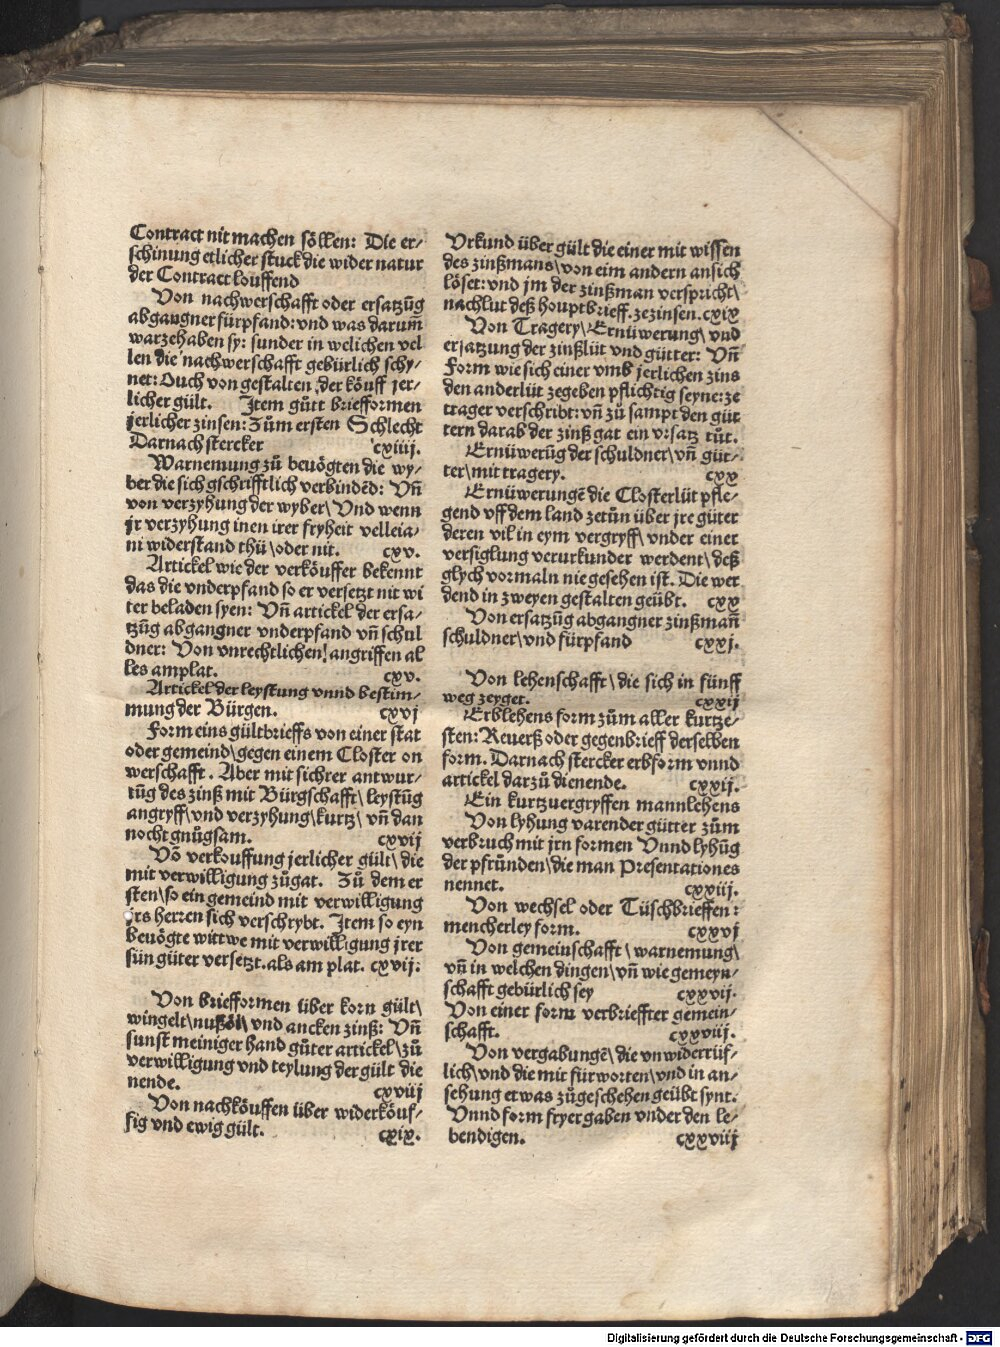 Contract nit machen söllen: Die er/
schinung etlicher stuck die wider natur
der Contract louffend
Von nachwerschafft oder ersatzūg
abgangner fürpfand: vnd was darum̄
warzehaben sy: sunder in welichen vel
len die nachwerschafft gebürlich schy/
net: Ouch von gestalten der köuff jer/
licher gült. Item gůtt briefformen
jerlicher zinsen: Zům ersten Schlecht
Darnach stercker cxiiij.
Warnemung zů beuögten die wy/
ber die sich gschrifftlich verbindēd: Vn̄
von verzyhung der wyber\ Vnd wenn
jr verzyhung inen irer fryheit velleia/
ni widerstand thü\ oder nit. cxv.
Artickel wie der verköuffer bekennt
das die vnderpfand so er versetzt nit wi
ter beladen syen: Vn̄ artickel der ersa/
tzūg abgangner vnderpfand vn̄ schul
dner: Von vnrechtlichen! angriffen al
les am plat. cxv.
Artickel der leystung vnnd bestim/
mung der Bürgen. cxvj
Form eins gültbrieffs von einer stat
oder gemeind\ gegen einem Closter on
werschafft. Aber mit sichrer antwur/
tūg des zinß mit Bürgschafft\ leystūg
angryff\ vnd verzyhung\ kurtz\ vn̄ dan
nocht gnůgsam. cxvij
Vō verkouffung jerlicher gült\ die
mit verwilligung zůgat. Zů dem er
sten\ so ein gemeind mit verwilligung
jrs herren sich verschrybt. Item so eyn
beuögte wittwe mit verwilligung jrer
sün güter versetzt. als am plat. cxvij:
Von briefformen über korn gült\
wingelt\ nußöl\ vnd ancken zinß: Vn̄
sunst meiniger hand gůter artickel\ zů
verwilligung vnd teylung der gült die
nende. cxviij
Von nachköuffen über widerköuf/
fig vnd ewig gült. cxix.
Vrkund über gült die einer mit wissen
des zinßmans\ von eim andern an sich
löset: vnd jm der zinßman verspricht\
nachlut deß houptbrieff. zezinsen. cxix
Von Tragery\ Ernüwerung\ vnd
ersatzung der zinßlüt vnd gütter: Vn̄
Form wie sich einer vmb jerlichen zins
den anderlüt zegeben pflichtig seyne: ze
trager verschribt: vn̄ zů sampt den güt
tern darab der zinß gat ein vrsatz tůt.
Ernüwerūg der schuldner\ vn̄ güt/
ter\ mit tragery. cxx
Ernüwerungē die Closterlüt pfle/
gend vff dem land zetůn über jre güter
deren vil in eym vergryff\ vnder einer
versiglung verurkunder werdent\ deß
glych vormaln nie gesehen ist. Die wer
dend in zweyen gestalten geübt. cxx
Von ersatzūg abgangner zinßman̄
schuldner\ vnd fürpfand cxxj.
Von lehenschafft\ die sich in fünff
weg zeyget. cxxij
Erblehens form zům aller kurtze/
sten: Reuerß oder gegenbrieff derselben
form. Darnach stercker erbform vnnd
artickel darzů dienende. cxxij.
Ein kurtzuergryffen mannlehens
Von lyhung varender gütter zům
verbruch mit jrn formen Vnnd lyhūg
der pfründen\ die man Presentationes
nennet. cxxiij.
Von wechsel oder Tüschbrieffen:
mencherley form. cxxvj
Von gemeinschafft\ warnemung\
vn̄ in welchen dingen\ vn̄ wie gemeyn/
schafft gebürlich sey cxxvij.
Von einer form verbrieffter gemein/
schafft. cxxviij.
Von vergabungē\ die vnwiderrüf/
lich\ vnd die mit fürworten\ vnd in an/
sehung etwas zůgeschehen geübt synt.
Vnnd form fryer gaben vnder den le/
bendigen. cxxviij
Digitalisierung gefördert durch die Deutsche Forschungsgemeinschaft - DFG